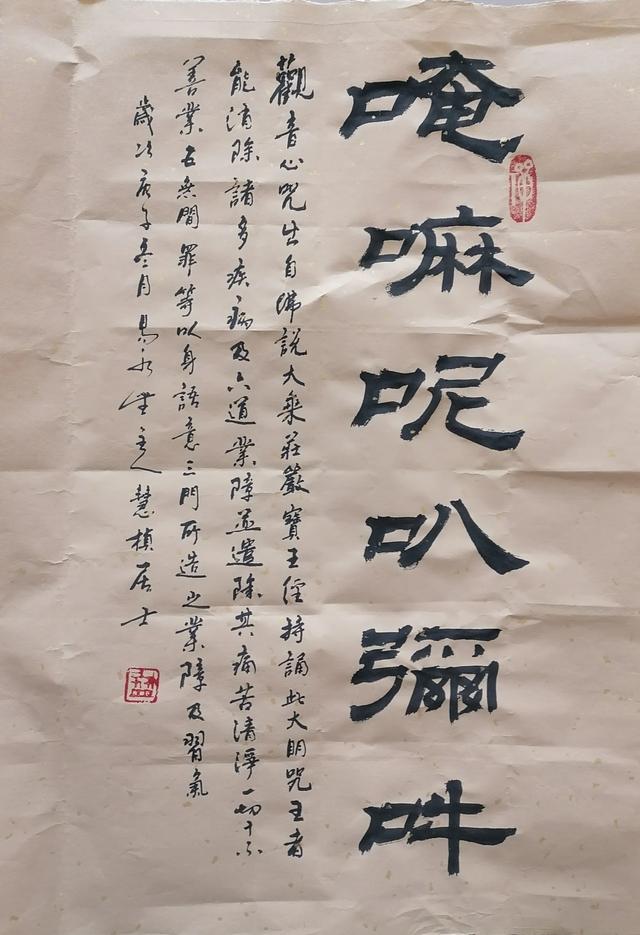 唵嘛呢叭彌吽
觀音心咒出自佛說大乘莊嚴寶王經持誦此大明咒王者
能消除諸多疾病及六道業障並遣除其痛苦清淨一切十不
善業五無間罪等以身語意三門所造之業障及習氣
歲次庚子冬月易水堂主人慧楨居士